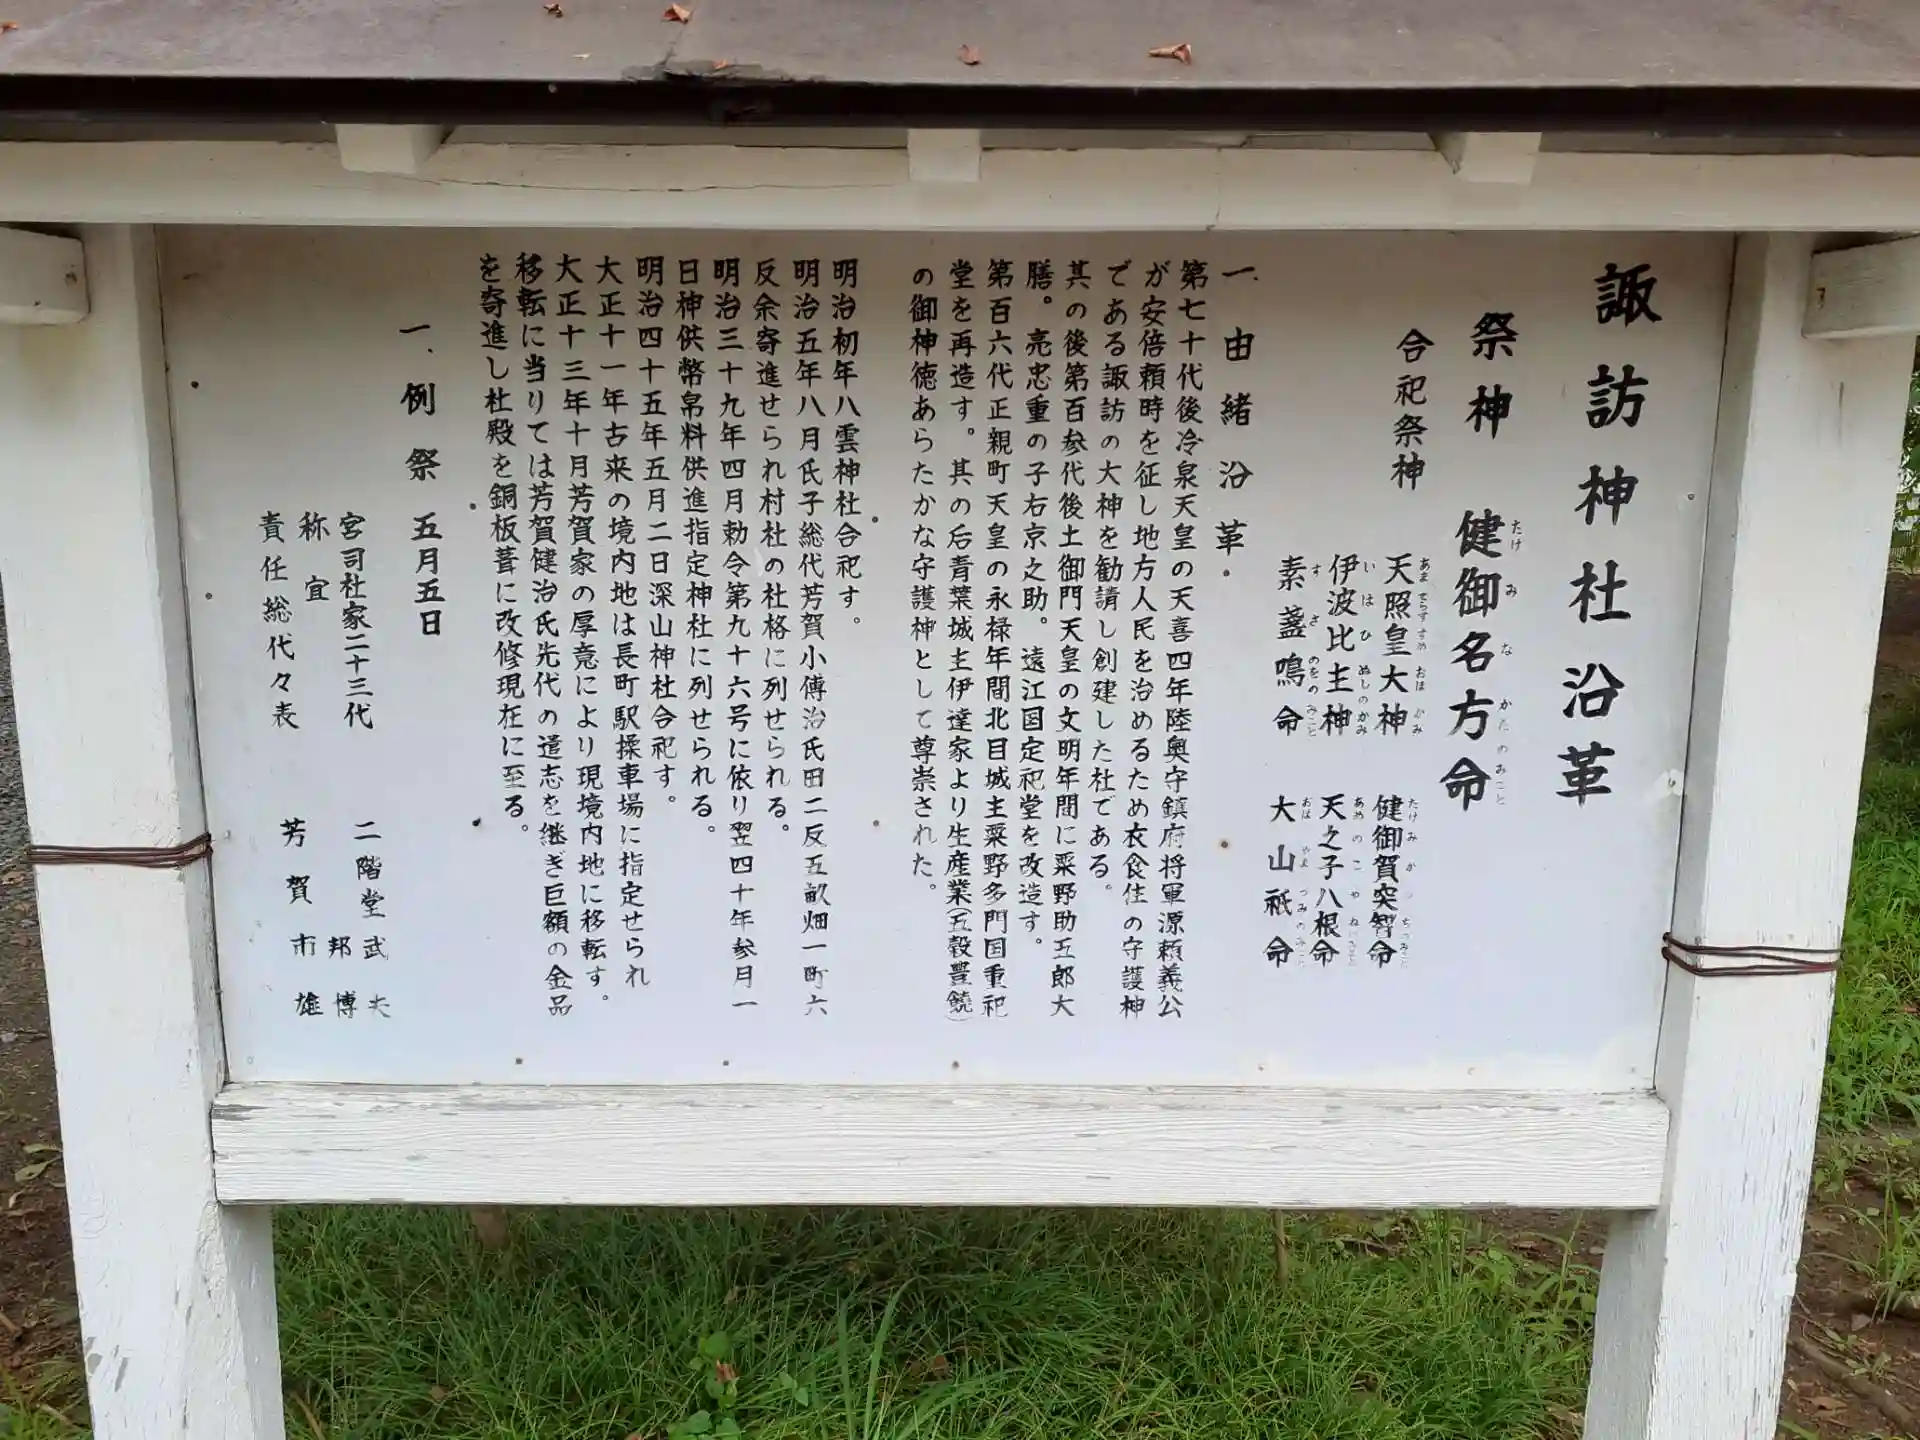 諏訪神社沿革
祭神 健御名方命
たけ み な かた の みこと
合祀祭神
天照皇大神 健御賀突智命
伊波比主神 天之子八根命
素盞鳴命 大山祇命
一、由緒沿革
第七十代後冷泉天皇の天喜四年陸奥守鎮府将軍源頼義公
が安倍頼時を征し地方人民を治めるため衣食住の守護神
である諏訪の大神を勧請し創建した社である。
其の後第百参代後土御門天皇の文明年間に粟野助五郎大
膳。亮忠重の子右京之助。遠江国定祀堂を改造す。
第百六代正親町天皇の永禄年間北目城主粟野多門国重祀
堂を再造す。其の后青葉城主伊達家より生産業(五穀豊饒)
の御神徳あらたかな守護神として尊崇された。
明治初年八雲神社合祀す。
明治五年八月氏子総代芳賀小傳治氏田二反五畝畑一町六
反余寄進せられ村社の社格に列せられる。
明治三十九年四月勅令第九十六号に依り翌四十年参月一
日神供幣帛料供進指定神社に列せられる。
明治四十五年五月二日深山神社合祀す。
大正十一年古来の境内地は長町駅操車場に指定せられ
大正十三年十月芳賀家の厚意により現境内地に移転す。
移転に当りては芳賀健治氏先代の遺志を継ぎ巨額の金品
を寄進し社殿を銅板葺に改修現在に至る。
一、例祭 五月五日
宮司社家二十三代 二階堂武夫
称宜 邦博
責任総代々表 芳賀市雄